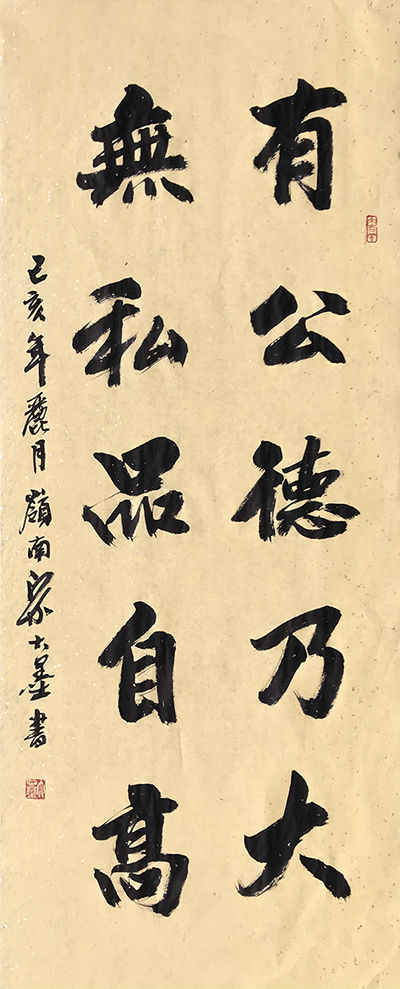 有公德乃大
無私品自高
己亥年麗月嶺南梁大墨書